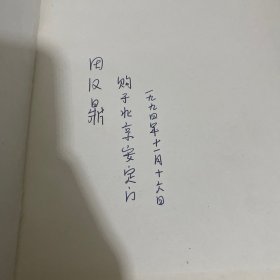 田汉鼎
购于北京安定门
一九九四年十一月十六日